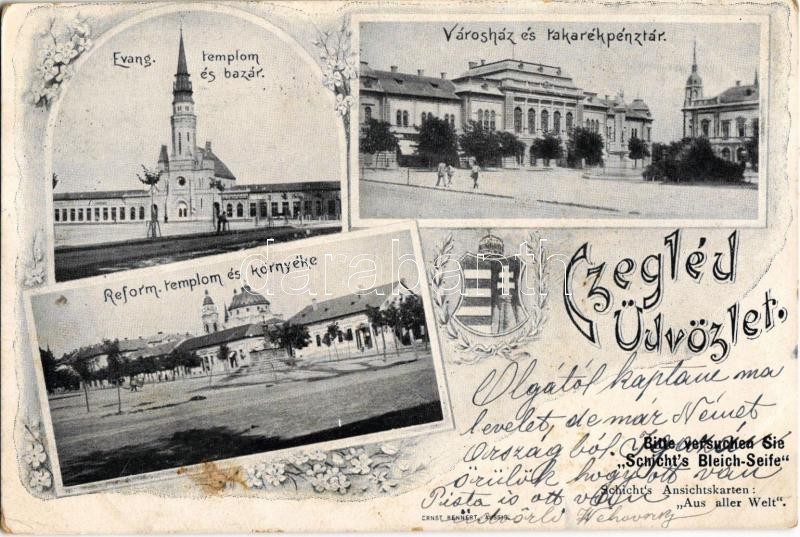 Evang. templom
és bazár.
Városház és takarékpénztár.
Reform. templom és környéke
Czegléd
Üdvözlet.
Olgától kaptam ma
levelet, de már Német
Országból.
Bitte versuchen Sie
„Schicht's Bleich-Seife"
örülök hogy ott van
Schicht's Ansichtskarten:
„Aus aller Welt".
Pista is ott
ERNST RENNERT, AUSSIG.
darabanth.com